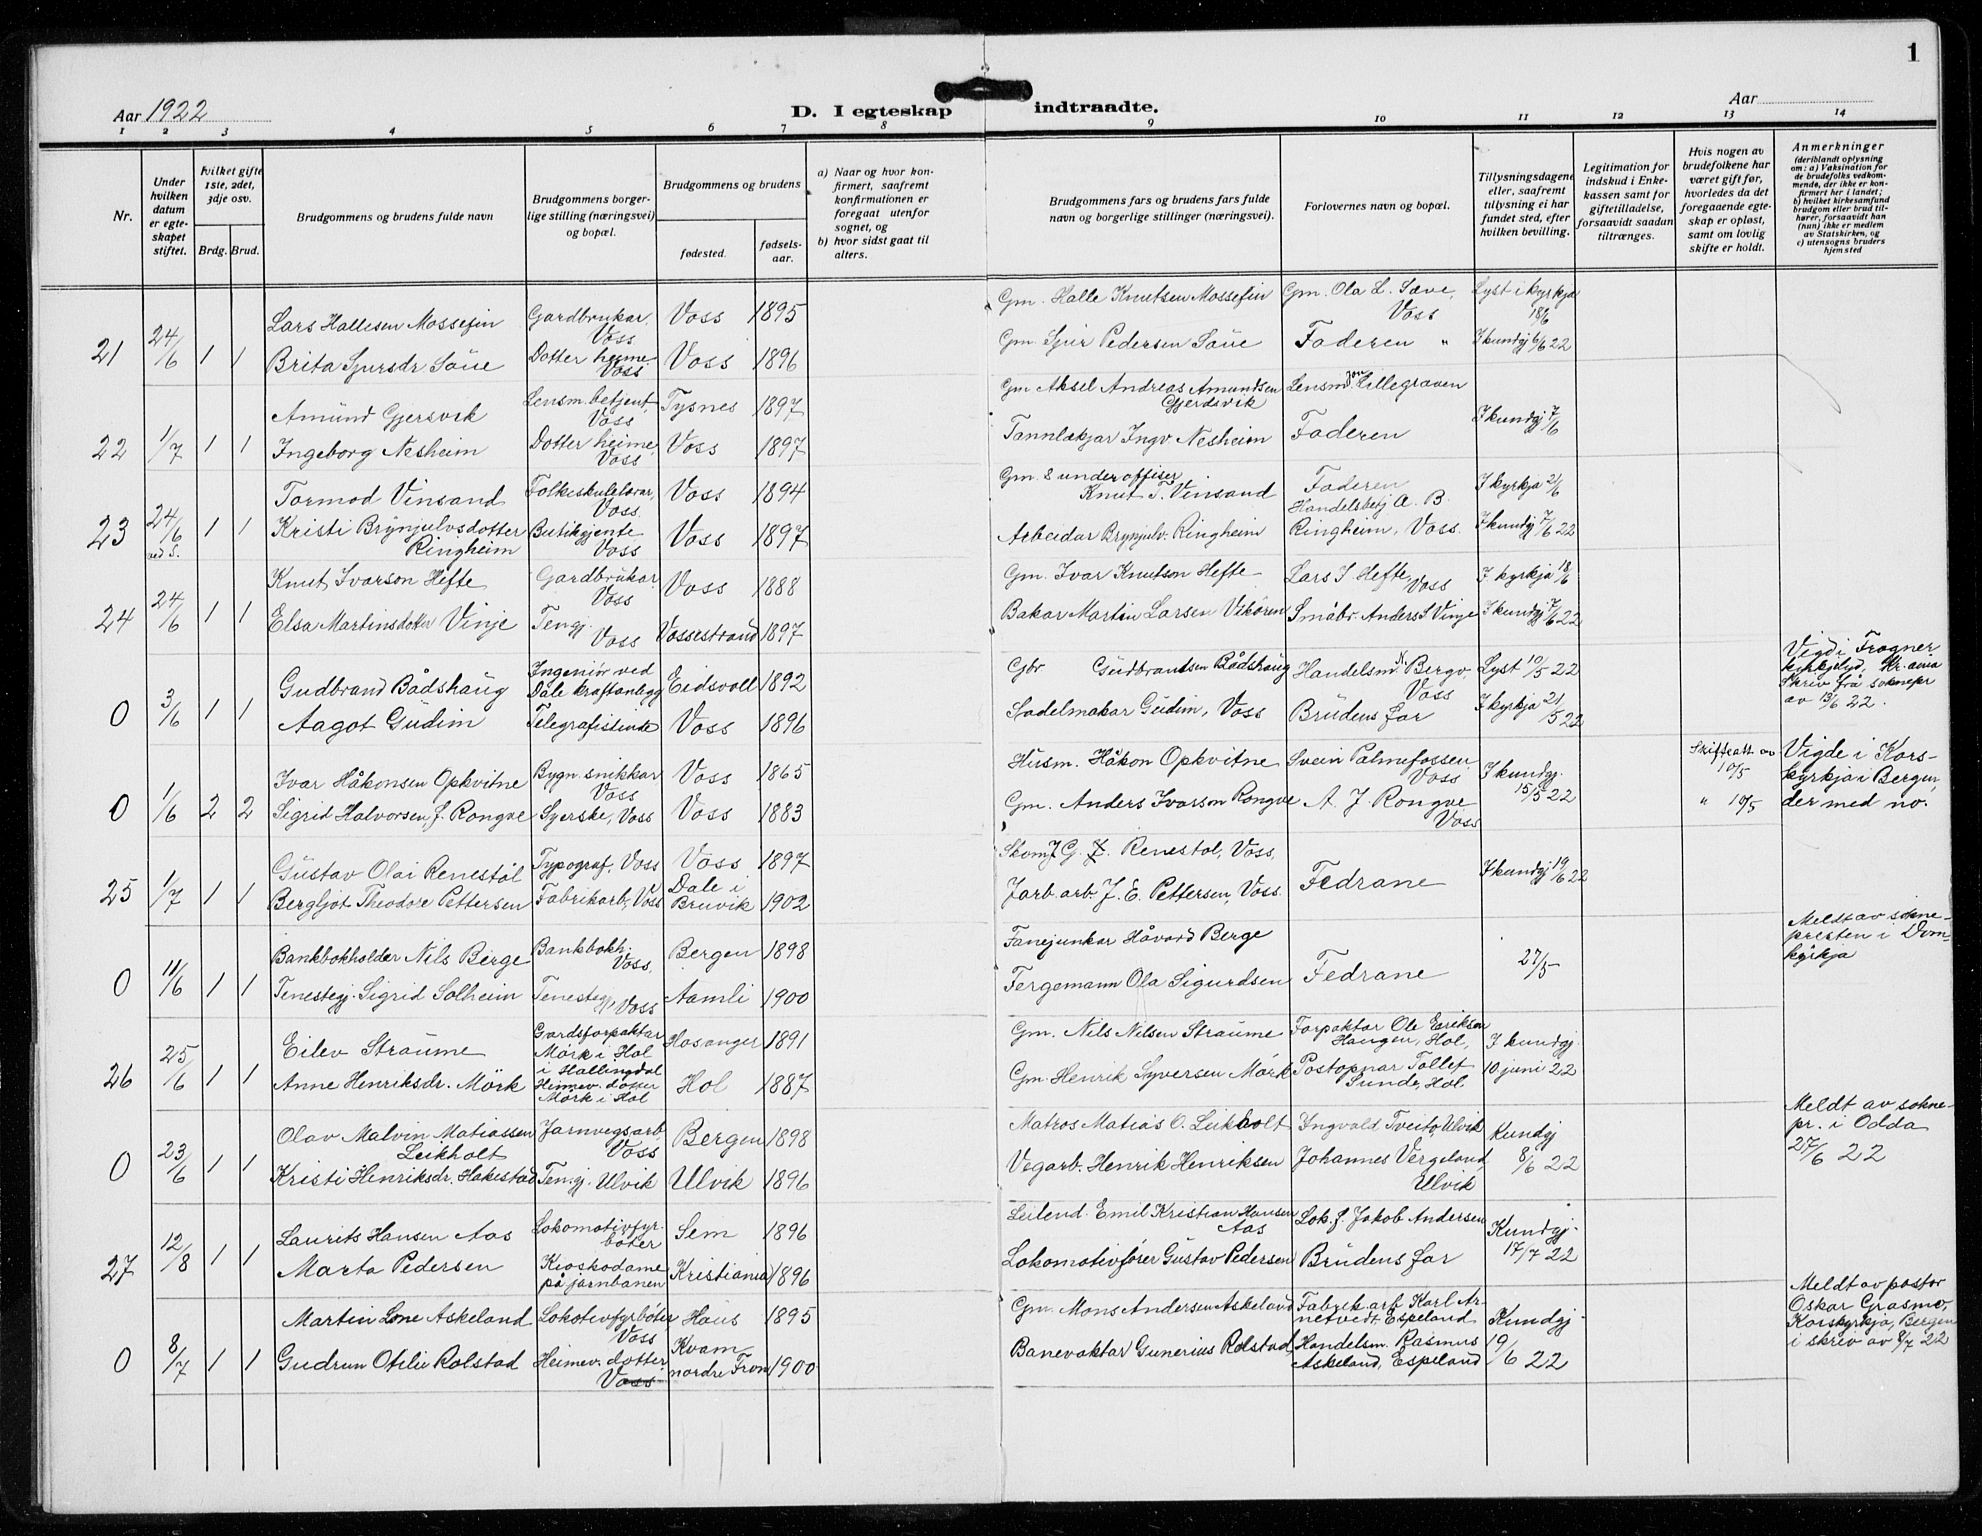 1
Aar 1922
D. I egteskap indtraadte.
Aar
1 2 3 4 5 6 7 8 9 10 11 12 13 14
Nr.
Under hvilken datum er egteskapet stiftet.
hvilket gifte 1ste, 2det, 3dje osv.
Brdg. Brud.
Brudgommens og brudens fulde navn
Brudgommens borgerlige stilling (næringsvei) og bopæl.
Brudgommens og brudens
fødested.
fødselsaar.
a) Naar og hvor konfirmert, saafremt konfirmationen er foregaat utenfor sognet, og
b) hvor sidst gaat til alters.
Brudgommens fars og brudens fars fulde navn og borgerlige stillinger (næringsvei).
Forlovernes navn og bopæl.
Tillysningsdagene eller, saafremt tillysning ei har fundet sted, efter hvilken bevilling.
Legitimation for indskud i Enkekassen samt for giftetilladelse, forsaavidt saadan tiltrænges.
Hvis nogen av brudefolkene har været gift før, hvorledes da det foregaaende egteskap er opløst, samt om lovlig skifte er holdt.
Anmerkninger
(deriblandt oplysning om: a) Vaksination for de brudefolks vedkommende, der ikke er konfirmert her i landet; b) hvilket kirkesamfund brudgom eller brud tilhører, forsaavidt han (hun) ikke er medlem av Statskirken, og c) utensogns bruders hjemsted
21 24/6 1 1
Lars Hallesen Mossefin Gardbrukar, Voss Voss 1895 Gm. Halle Knutsen Mossefin Gm. Ola L. Sæve, Voss Lyst i kyrkja 18/6
Brita Sjursdr Söue Dotter heime Voss Voss 1896 Gm. Sjur Pedersen Söue Faderen " I kundgj 6/6 22
22 1/7 1 1
Amund Gjersvik Lensm.betjent, Voss Tysnes 1897 Gm Aksel Andreas Amundsen Gjerdsvik Lensm Jon Lillegraven
Ingeborg Nesheim Dotter heime, Voss Voss 1897 Tannlækjar Ingv Nesheim Faderen I kundgj 7/6
23 24/6 1 1
Tormod Vinsand Folkeskulelærar, Voss. Voss 1894 Gm. & underoffiser Knut T. Vinsand Faderen I kyrkja 2/6
Kristi Brynjulvsdotter Ringheim Butikgjente Voss Voss 1897 Arbeidar Brynjulv Ringheim Handelsbetj A. B. Ringheim, Voss. I kundgj 7/6 22
24 24/6 1 1
Knut Ivarson Hefte Gardbrukar Voss Voss 1888 Gm. Ivar Knutson Hefte Lars I Hefte, Voss I kyrkja 18/6
Elsa Martinsdotter Vinje Tengj. Voss Vossestrand 1897 Bakar Martin Larsen Vikören Småbr. Anders S Vinje I kundgj 7/6 22
0 3/6 1 1
Gudbrand Bådshaug Ingeniør ved Dale kraftanlegg Eidsvoll 1892 Gbr Gudbrandsen Bådshaug Handelsm N Bergo, Voss Lyst 10/5 22
Aagot Gudim Telegrafistinde Voss 1896 Sadelmakar Gudim, Voss Brudens far I kyrkja 21/5 22
Vigdi Frogner kyrkjelyd, Kr.ania Skriv frå soknepr av 13/6 22.
0 1/6 2 2
Ivar Håkonsen Opkvitne Bygn snikkar Voss Voss 1865 Husm. Håkon Opkvitne Svein Palmefossen Voss I kundgj. 15/5 22 Skifteatt av 10/5
Sigrid Halvorsen, f. Rongve Syerske, Voss Voss 1883 Gm. Anders Ivarson Rongve A. J. Rongve Voss " 10/5
Vigde i Korskyrkja i Bergen, der med no.
25 1/7 1 1
Gustav Olai Renestöl Typograf, Voss Voss 1897 Skom G. Renestol, Voss.
Bergljot Theodore Pettersen Fabrikarb, Voss Dale i Bruvik 1902 Jarb arb. J. E. Pettersen, Voss Fedrane I kundgj 19/6 22
0 11/6 1 1
Bankbokholder Nils Berge Bankbokh. Voss Bergen 1898 Fanejunkar Håvard Berge
Tenestegj. Sigrid Solheim Tenestegj, Voss Aamli 1900 Fergemann Ola Sigurdsen Fedrane 27/5
Meldt av soknepresten i Domkyrkja
26 25/6 1 1
Eilev Straume Gardsforpaktar Mörk i Hol i Hallingdal Hosanger 1891 Gm. Nils Nilsen Straume Forpaktar Ole Eriksen Haugen, Hol, I kundgj.
Anne Henriksdr. Mörk Heimev. dotter Mörk i Hol Hol 1887 Gm. Henrik Syversen Mörk Postopnar Tollef Sunde, Hol 10 juni 22
0 23/6 1 1
Olav Malvin Matiassen Leikholt Jarnvegsarb, Voss Bergen 1898 Matros Matias O. Leikholt Ingvald Tveito, Ulvik Kundgj 8/6 22
Kristi Henriksdr. Hakestad Ten.gj. Ulvik Ulvik 1896 Vegarb. Henrik Henriksen Johannes Vergeland, Ulvik
Meldt av soknepr. i Odda 27/6 22
27 12/8 1 1
Laurits Hansen Aas Lokomotivfyrböter Sem 1896 Leilend. Emil Kristian Hansen Aas Lok.f. Jakob Andersen Kundgj. 17/7 22
Marta Pedersen Kioskodame på jarnbanen Kristiania 1896 Lokomotivförer Gustav Pedersen Brudens far
0 8/7 1 1
Martin Lone Askeland Lokotivfyrböter Voss Haus 1895 Gm. Mons Andersen Askeland Fabrik arb Karl Arnetvedt Espeland Kundgj. 19/6 22
Gudrun Otilie Rolstad Heimev. dotter Voss Kvam nordre Fron 1900 Banevaktar Gunerius Rolstad, Handelsm. Rasmus Askeland, Espeland
Meldt av pastor Oskar Grasmo, Korskyrkja, Bergen i skriv av 8/7 22